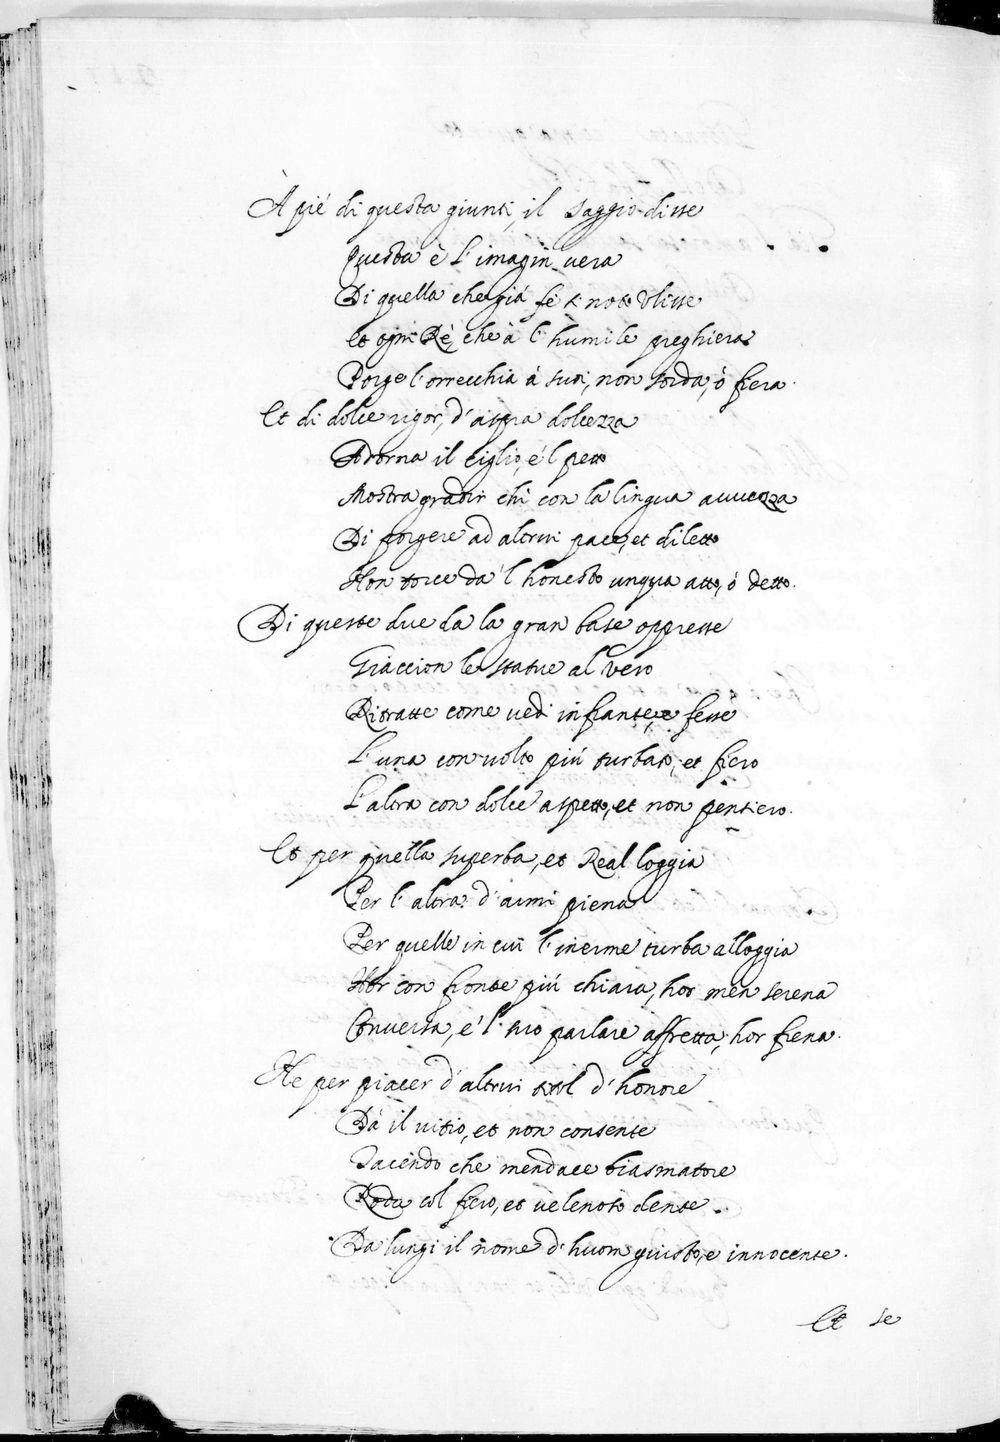 À pié di questa giunti, il saggio disse
Questa è l'imagin vera
Di quella che già fè sì noto Ulisse
Et ogni Rè, che à l'humile preghiera
Porge l'orrecchia à suoi, non sorda, ò fiera.
Et di dolce rigor, d'aspra dolcezza
Adorna il ciglio, e'l petto
Mostra gradir chi con la lingua avvezza
Di porgere ad altrui pace, et diletto
Non torce da'l honesto unqua atto, ò detto.
Di queste due da la gran base oppresse
Giaccion le statue al vero
Ritratte come vedi infrante, e fesse
L'una con volto più turbato, et fiero
L'altra con dolce aspetto, et non sentiero.
Et per quella superba, et Real loggia
Per l'altra d'armi piena
Per quelle in cui l'inerme turba alloggia
Hor con fronte più chiara, hor men serena
Conversa, e'l suo parlare affretta, hor frena.
Ne per piacer d'altrui titol d'honore
Dà il vitio, et non consente
Tacendo che mendace biasmatore
Roda col fiero, et velenoso dente
Da lungi il nome d'huom giusto, e innocente.
Et se